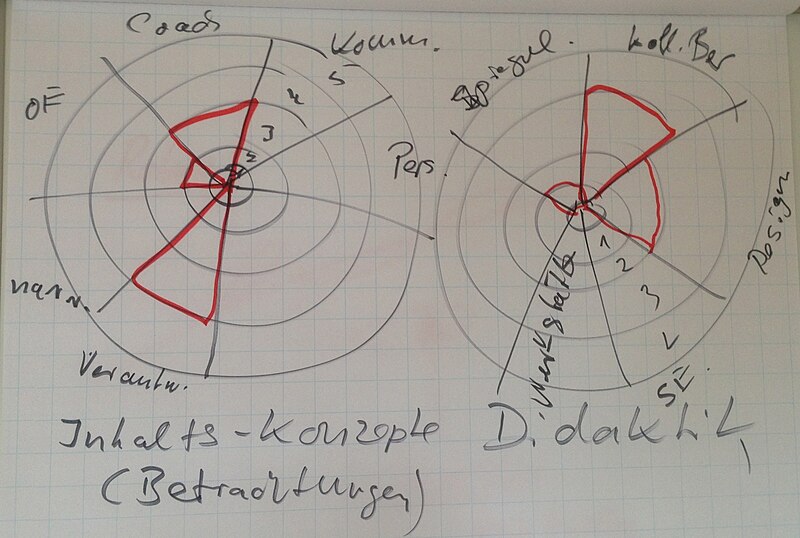 Coach
Komm.
OE
Pers.
narr.
Verantw.
5
4
3
2
Inhalts-Konzepte
(Betrachtungen)
Spiegel.
koll. Ber
Design
SE.
D.Werkstätte
1
2
3
Didaktik